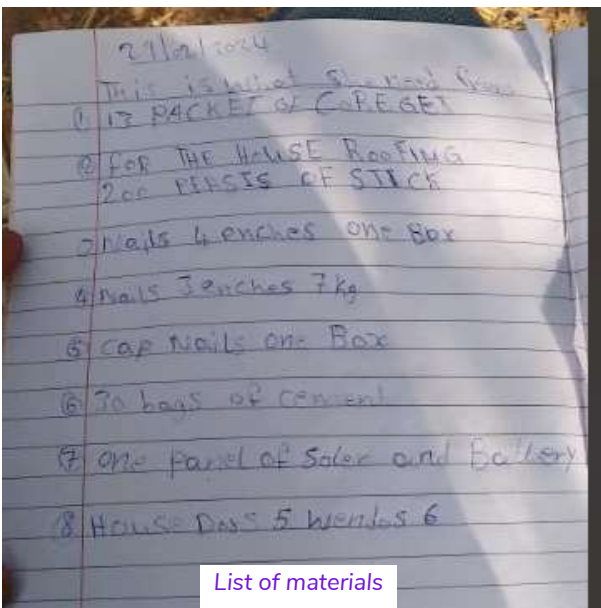 27/02/2024
This is what She need from
① 13 PACKET OF COREGET
② FOR THE HOUSE ROOFING
200 PEESIS OF STICK
3 Nails 4 enches one Box
4 Nails 3 enches 7kg
⑤ cap Nails one Box
⑥ 30 bags of cement
⑦ one panel of Soler and Battery
⑧ House Dors 5 wendos 6
List of materials